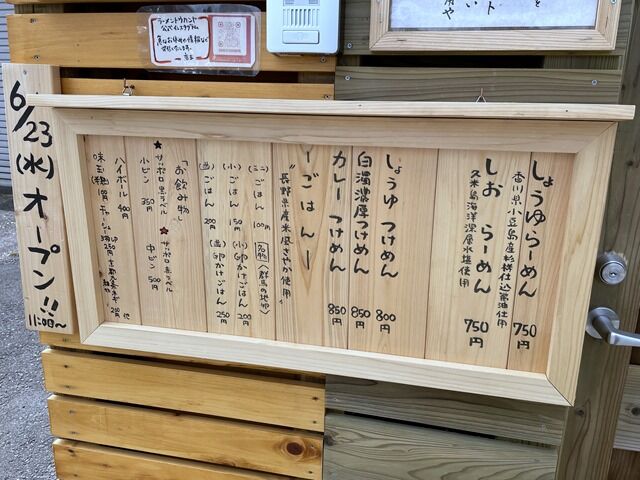 しょうゆらーめん 750円
香川県小豆島産杉樽仕込醤油使用
しお らーめん 750円
久米島海洋深層水塩使用
しょうゆ つけめん 800円
白濁濃厚つけめん 850円
カレー つけめん 850円
ーごはんー
"長野県産米風さやか使用"
(ミニ)ごはん 100円
(小)ごはん 150円
(並)ごはん 200円
名物 〈群馬の地卵〉
(小)卵かけごはん 200円
(並)卵かけごはん 250円
「お飲み物」
★サッポロ黒ラベル 小ビン 350円
★サッポロ赤ラベル 中ビン 500円
ハイボール 400円
味玉 100円 チャーシュー 250円
6/23(水)オープン!!
11:00〜
ラーメントリカンド
公式インスタグラム